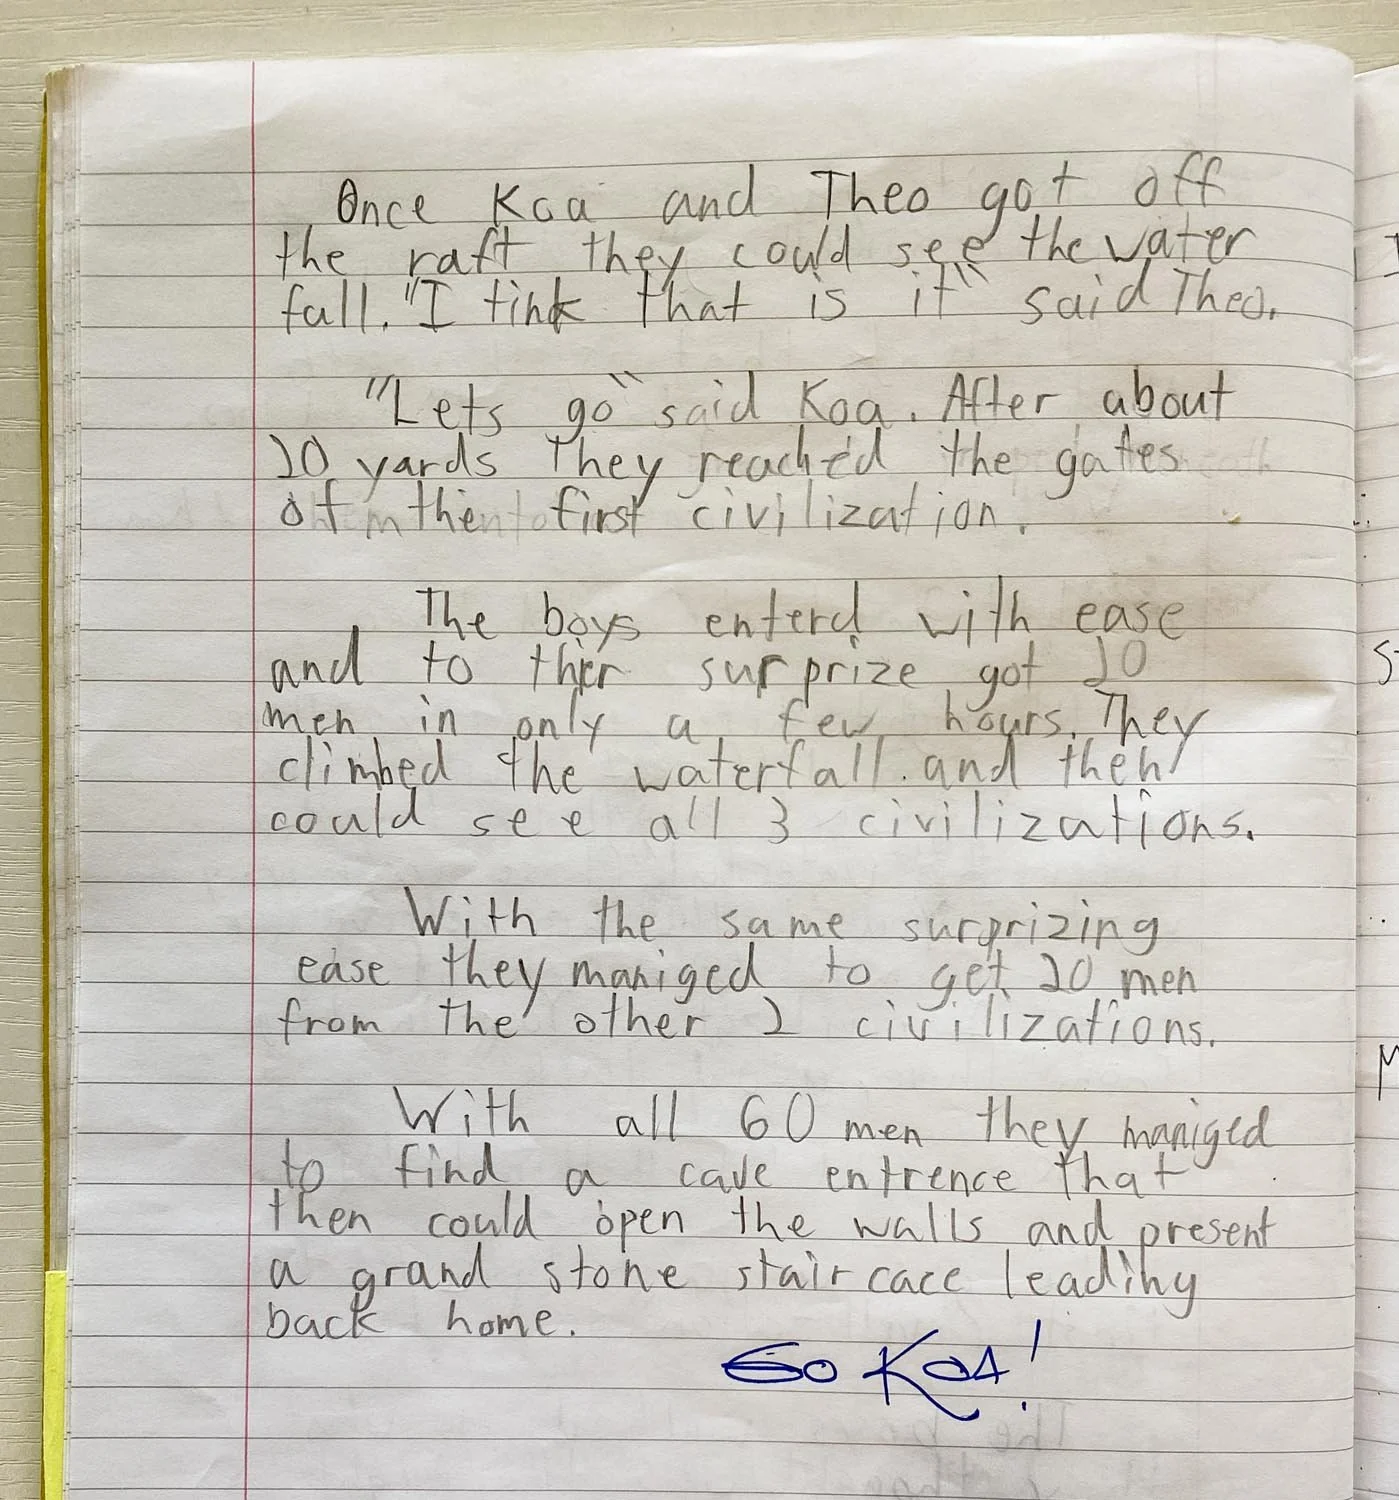 Once Koa and Theo got off
the raft they could see the water
fall. "I tink that is it" said Theo.
"Lets go" said Koa. After about
20 yards they reached the gates
of the first civilization.
The boys enterd with ease
and to thier surprize got 20
men in only a few hours. They
climbed the waterfall and then
could see all 3 civilizations.
With the same surprizing
ease they maniged to get 20 men
from the other 2 civilizations.
With all 60 men they maniged
to find a cave entrence that
then could open the walls and present
a grand stone stair cace leading
back home.
Go Koa!